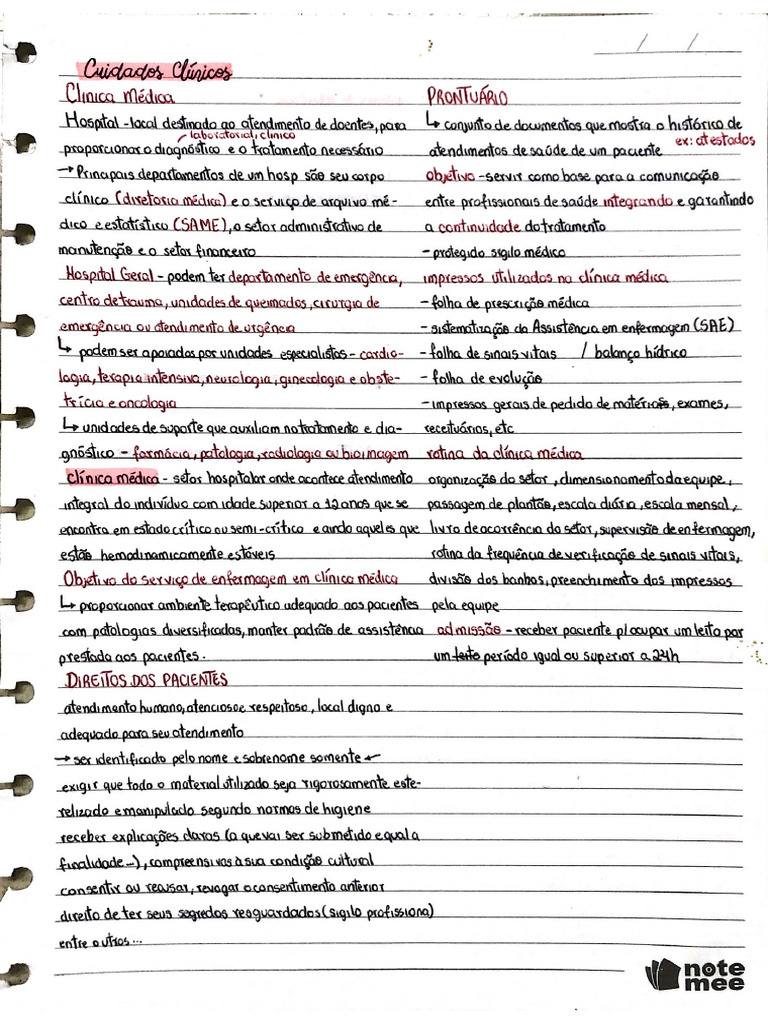 Cuidados Clínicos
Clínica Médica
Hospital - local destinado ao atendimento de doentes, para
laboratorial, clínico
proporcionar o diagnóstico e o tratamento necessário
→ Principais departamentos de um hosp são seu corpo
clínico (diretoria médica) e o serviço de arquivo mé-
dico e estatístico (SAME), o setor administrativo de
manutenção e o setor financeiro
Hospital Geral - podem ter departamento de emergência,
centro de trauma, unidades de queimados, cirurgia de
emergência ou atendimento de urgência
↳ podem ser apoiados por unidades especialistas - cardio-
logia, terapia intensiva, neurologia, ginecologia e obste-
trícia e oncologia
↳ unidades de suporte que auxiliam no tratamento e dia-
gnóstico - farmácia, patologia, radiologia ou bioimagem
Clínica médica - setor hospitalar onde acontece atendimento
integral do indivíduo com idade superior a 12 anos que se
encontra em estado crítico ou semi-crítico e ainda aqueles que
estão hemodinamicamente estáveis
Objetivo do serviço de enfermagem em clínica médica
↳ proporcionar ambiente terapêutico adequado aos pacientes
com patologias diversificadas, manter padrão de assistência
prestada aos pacientes.
DIREITOS DOS PACIENTES
atendimento humano, atencioso e respeitoso, local digno e
adequado para seu atendimento
→ ser identificado pelo nome e sobrenome somente ←
exigir que todo o material utilizado seja rigorosamente este-
relizado e manipulado segundo normas de higiene
receber explicações claras (a que vai ser submetido e qual a
finalidade...), compreensivas à sua condição cultural
consentir ou recusar, revogar o consentimento anterior
direito de ter seus segredos resguardados (sigilo profissiona)
entre outros...
PRONTUÁRIO
↳ conjunto de documentos que mostra o histórico de
ex: atestados
atendimentos de saúde de um paciente
objetivo - servir como base para a comunicação
entre profissionais de saúde integrando e garantindo
a continuidade do tratamento
- protegido sigilo médico
impressos utilizados na clínica médica
- folha de prescrição médica
- sistematização da Assistência em enfermagem (SAE)
- folha de sinais vitais / balanço hídrico
- folha de evolução
- impressos gerais de pedido de matérias, exames,
receituários, etc
rotina da clínica médica
organização do setor, dimensionamento da equipe,
passagem de plantão, escala diária, escala mensal,
livro de ocorrência do setor, supervisão de enfermagem,
rotina da frequência de verificação de sinais vitais,
divisão dos banhos, preenchimento dos impressos
pela equipe
admissão - receber paciente p/ ocupar um leito por
um leito período igual ou superior a 24h
note
mee